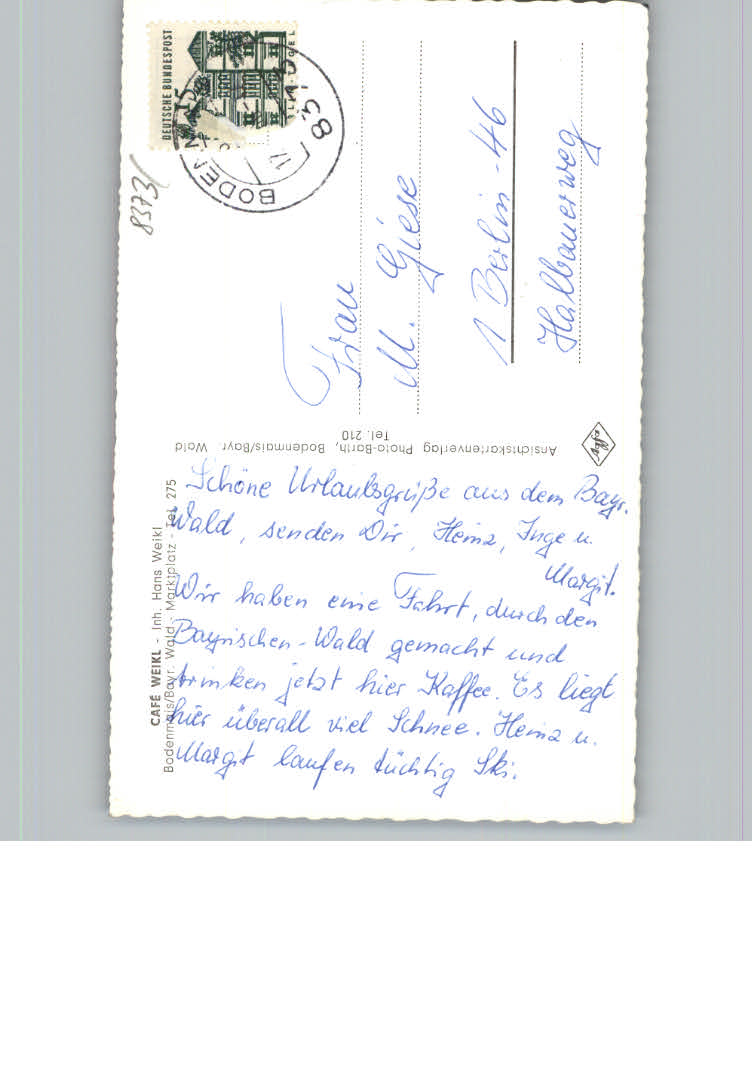 Schöne Urlaubsgrüße aus dem Bayr.
Wald, senden Dir, Heinz, Inge u.
Margit.
Wir haben eine Fahrt, durch den
Bayrischen-Wald gemacht und
trinken jetzt hier Kaffee. Es liegt
hier überall viel Schnee. Heinz u.
Margit laufen tüchtig Ski.
Frau
M. Giese
1 Berlin-46
Halbauerweg
CAFÉ WEIKL - Inh. Hans Weikl
Bodenmais/Bayr. Wald - Marktplatz - Tel. 275
Ansichtskartenverlag Photo-Barth, Bodenmais/Bayr. Wald
Tel. 210
DEUTSCHE BUNDESPOST
15
83731